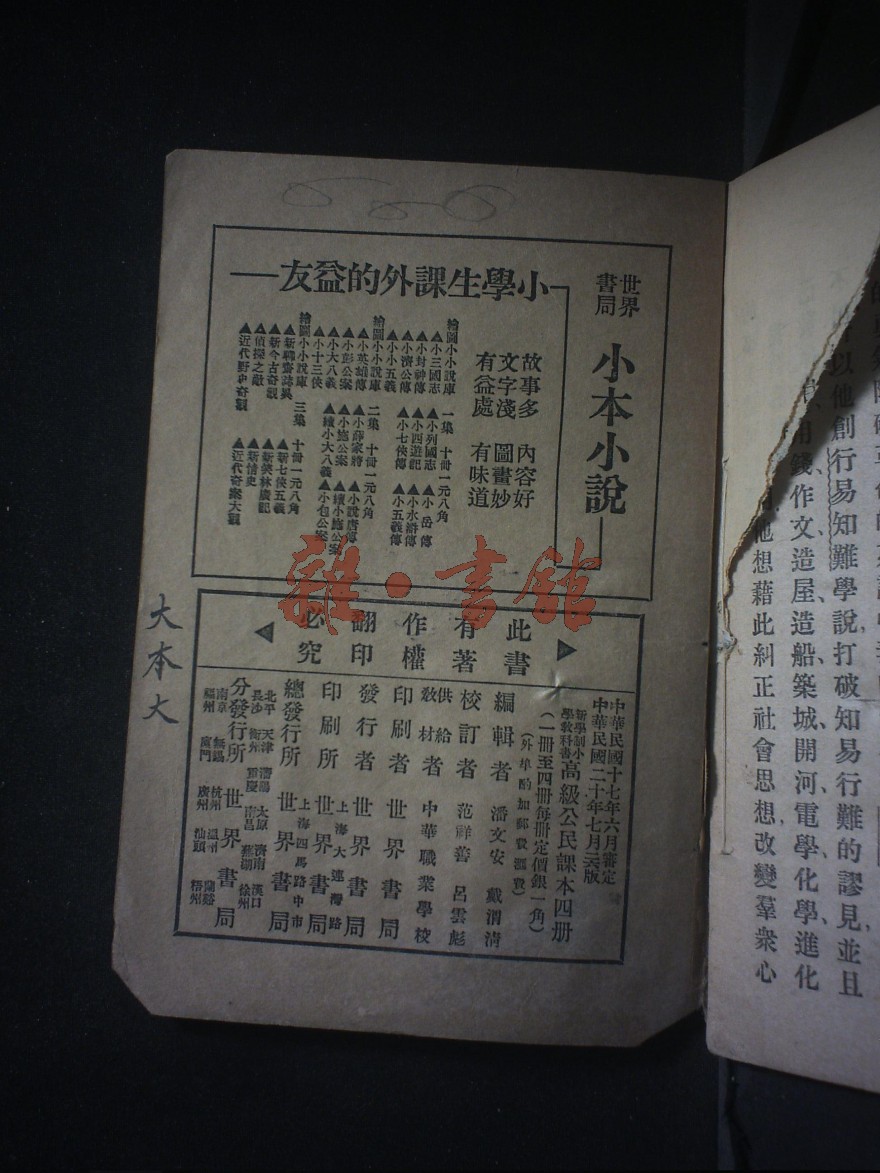 世界書局
小本小說
小學生課外的益友
故事多 內容好
文字淺 圖畫妙
有益處 有味道
繪圖小小說庫 一集 十冊一元八角
▲小三國志 ▲小列國志 ▲小岳傳
▲小封神傳 ▲小西遊記 ▲小水滸傳
▲小濟公傳 ▲小七俠傳 ▲小五義傳
▲小小五義
繪圖小小說庫 二集 十冊一元八角
▲小英雄傳 ▲小薛家將 ▲小說唐傳
▲小彭公案 ▲小施公案 ▲續小施公案
▲小大八義 ▲續小大八義 ▲小包公案
▲小十三俠
繪圖小小說庫 三集 十冊一元八角
▲新聊齋誌異 ▲新七俠五義
▲新今古奇觀 ▲新笑林廣記
▲偵探之敵 ▲新情史
▲近代野史奇觀 ▲近代奇案大觀
此書
有著
作權
翻印
必究
中華民國十七年六月審定
中華民國二十年七月版
新學制小學教科書 高級公民課本四册
(一册至四册每册定價銀一角)
(外埠酌加郵費滙費)
編輯者 潘文安 戴渭清
校訂者 范祥善 呂雲彪
供給教材者 中華職業學校
印刷者 世界書局
發行者 世界書局
印刷所 上海大連灣路 世界書局
總發行所 上海四馬路中市 世界書局
北平 天津 瀋陽 太原 濟南 漢口
長沙 衡州 重慶 南昌 蕪湖 徐州
分發行所 世界書局
南京 無錫 杭州 溫州 蘭谿
福州 廈門 廣州 汕頭 梧州
大本大
雜·書館
以他創行易知難學說,打破知易行難的謬見,並且
用錢、作文、造屋、造船、築城、開河、電學、化學、進化
他想藉此糾正社會思想,改變羣衆心